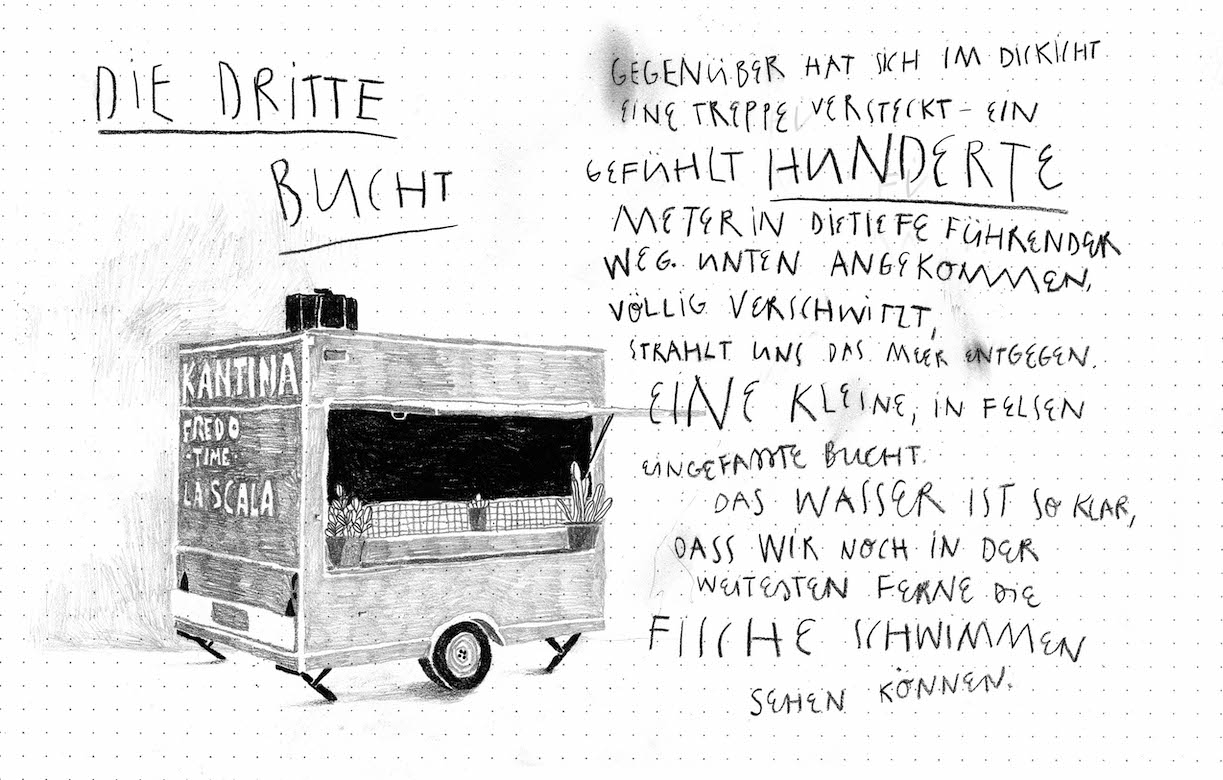 DIE DRITTE
BUCHT
KANTINA
FREDO
·TIME·
LA SCALA
GEGENÜBER HAT SICH IM DICKICHT
EINE TREPPE VERSTECKT – EIN
GEFÜHLT HUNDERTE
METER IN DIE TIEFE FÜHRENDER
WEG. UNTEN ANGEKOMMEN,
VÖLLIG VERSCHWITZT,
STRAHLT UNS DAS MEER ENTGEGEN.
EINE KLEINE, IN FELSEN
EINGEFASSTE BUCHT.
DAS WASSER IST SO KLAR,
DASS WIR NOCH IN DER
WEITESTEN FERNE DIE
FISCHE SCHWIMMEN
SEHEN KÖNNEN.